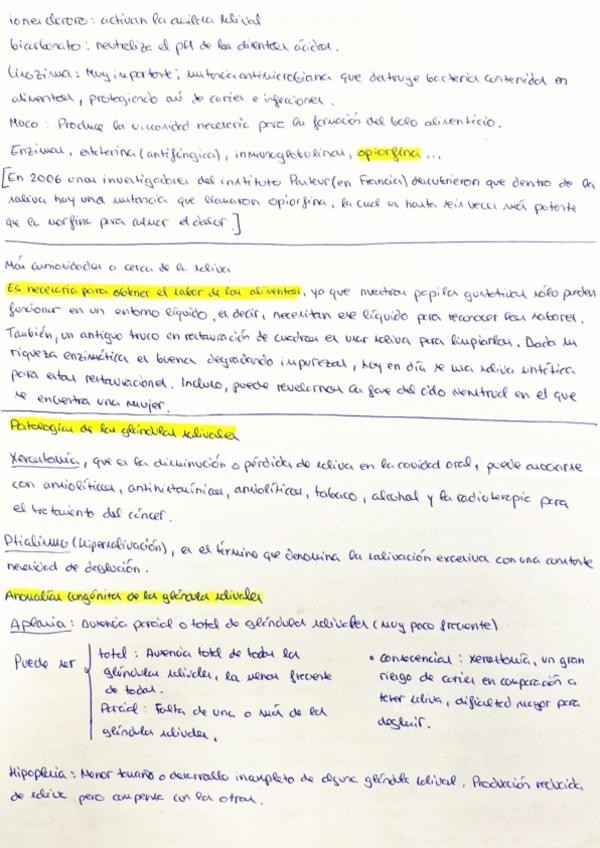 iones cloro: activan la amilasa salival
bicarbonato: neutraliza el pH de los alimentos ácidos.
Lisozima: Muy importante; sustancia antimicrobiana que destruye bacterias contenidas en
alimentos, protegiendo así de caries e infecciones.
Moco: Produce la viscosidad necesaria para la formación del bolo alimenticio.
Enzimas, estaterina (antifúngica), inmunoglobulinas, opiorfina...
[En 2006 unos investigadores del instituto Pasteur (en Francia) descubrieron que dentro de la
saliva hay una sustancia que llamaron opiorfina, la cual es hasta seis veces más potente
que la morfina para calmar el dolor.]
Más curiosidades a cerca de la saliva
Es necesaria para obtener el sabor de los alimentos, ya que nuestras papilas gustativas sólo pueden
funcionar en un entorno líquido, es decir, necesitan ese líquido para reconocer los sabores.
También, un antiguo truco en restauración de cuadros es usar saliva para limpiarlos. Dada su
riqueza enzimática es buena degradando impurezas, hoy en día se usa saliva sintética
para estas restauraciones. Incluso, puede revelarnos la fase del ciclo menstrual en el que
se encuentra una mujer.
Patologías de las glándulas salivales
Xerostomía, que es la disminución o pérdida de saliva en la cavidad oral, puede asociarse
con ansiolíticos, antihistamínicos, ansiolíticos, tabaco, alcohol y la radioterapia para
el tratamiento del cáncer.
Ptialismo (hipersalivación), es el término que denomina la salivación excesiva con una constante
necesidad de deglución.
Anomalías congénitas de las glándulas salivales
Aplasia: Ausencia parcial o total de glándulas salivales (muy poco frecuente)
Puede ser
total: Ausencia total de todas las
glándulas salivales, la menos frecuente
de todas.
Parcial: Falta de una o más de las
glándulas salivales.
• consecencias: xerostomía, un gran
riesgo de caries en comparación a
tener saliva, dificultad mayor para
deglutir.
Hipoplasia: Menor tamaño o desarrollo incompleto de alguna glándula salival. Producción reducida
de saliva pero compensa con las otras.